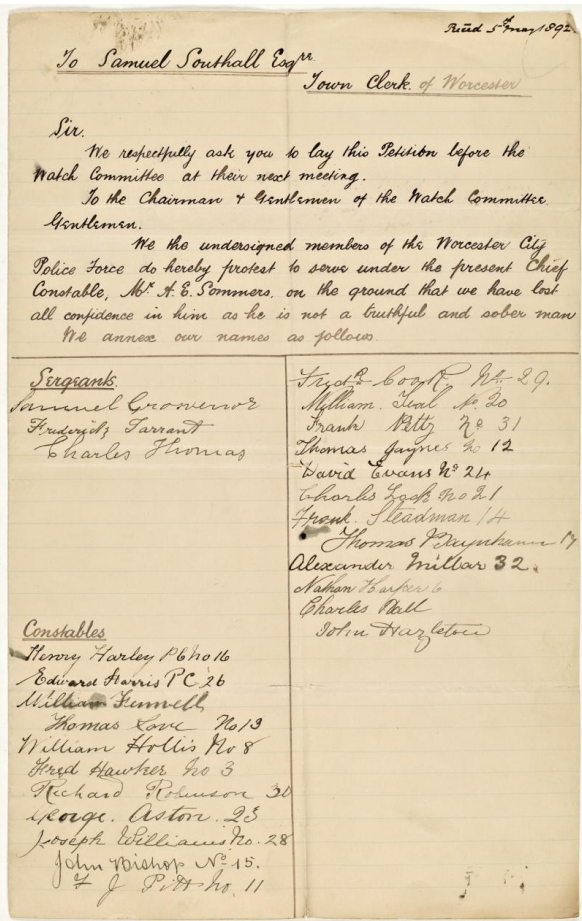 Recd 5th May 1892
To Samuel Southall Esqre
Town Clerk of Worcester
Sir.
We respectfully ask you to lay this Petition before the
Watch Committee at their next meeting.
To the Chairman & Gentlemen of the Watch Committee.
Gentlemen.
We the undersigned members of the Worcester City
Police Force do hereby protest to serve under the present Chief
Constable, Mr A. E. Sommers, on the ground that we have lost
all confidence in him as he is not a truthful and sober man
We annex our names as follows.
Sergeants
Samuel Groovenor
Frederick Tarrant
Charles Thomas
Constables
Henry Harley PC No 16
Edward Harris PC 26
William Fennell
Thomas Love No 13
William Hollis No 8
Fred Hawker No 3
Richard Robinson 30
George. Aston. 23
Joseph Williams No. 28
John Bishop No 15.
F J Pitt No. 11
Fredk Cook No 29.
William. Teal No 20
Frank Pitts No 31
Thomas Jaynes No 12
David Evans No 24
Charles Lock No 21
Frank. Steadman 14
Thomas 17
Alexander Millar 32.
Nathan Harper 6
Charles Ball
John Hazleton